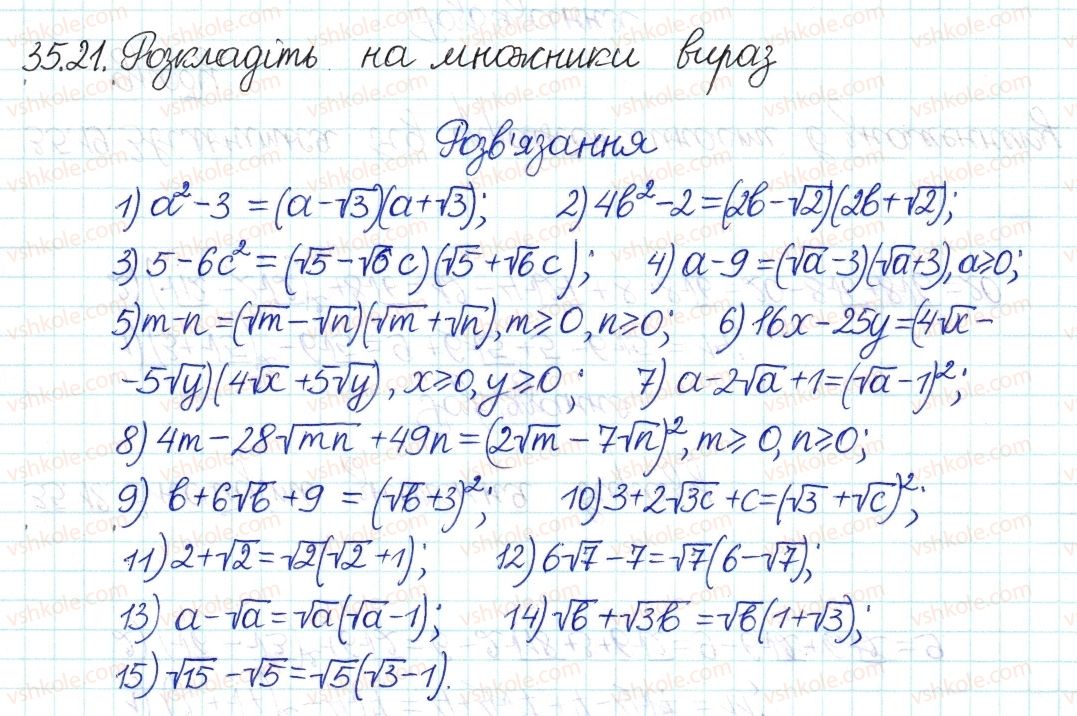 35.21. Розкладіть на множники вираз
Розв'язання
1) a² - 3 = (a - √3)(a + √3); 2) 4b² - 2 = (2b - √2)(2b + √2);
3) 5 - 6c² = (√5 - √6 c)(√5 + √6 c); 4) a - 9 = (√a - 3)(√a + 3), a ≥ 0;
5) m - n = (√m - √n)(√m + √n), m ≥ 0, n ≥ 0; 6) 16x - 25y = (4√x -
- 5√y)(4√x + 5√y), x ≥ 0, y ≥ 0; 7) a - 2√a + 1 = (√a - 1)²;
8) 4m - 28√mn + 49n = (2√m - 7√n)², m ≥ 0, n ≥ 0;
9) b + 6√b + 9 = (√b + 3)²; 10) 3 + 2√3c + c = (√3 + √c)²;
11) 2 + √2 = √2(√2 + 1); 12) 6√7 - 7 = √7(6 - √7);
13) a - √a = √a(√a - 1); 14) √b + √3b = √b(1 + √3);
15) √15 - √5 = √5(√3 - 1).